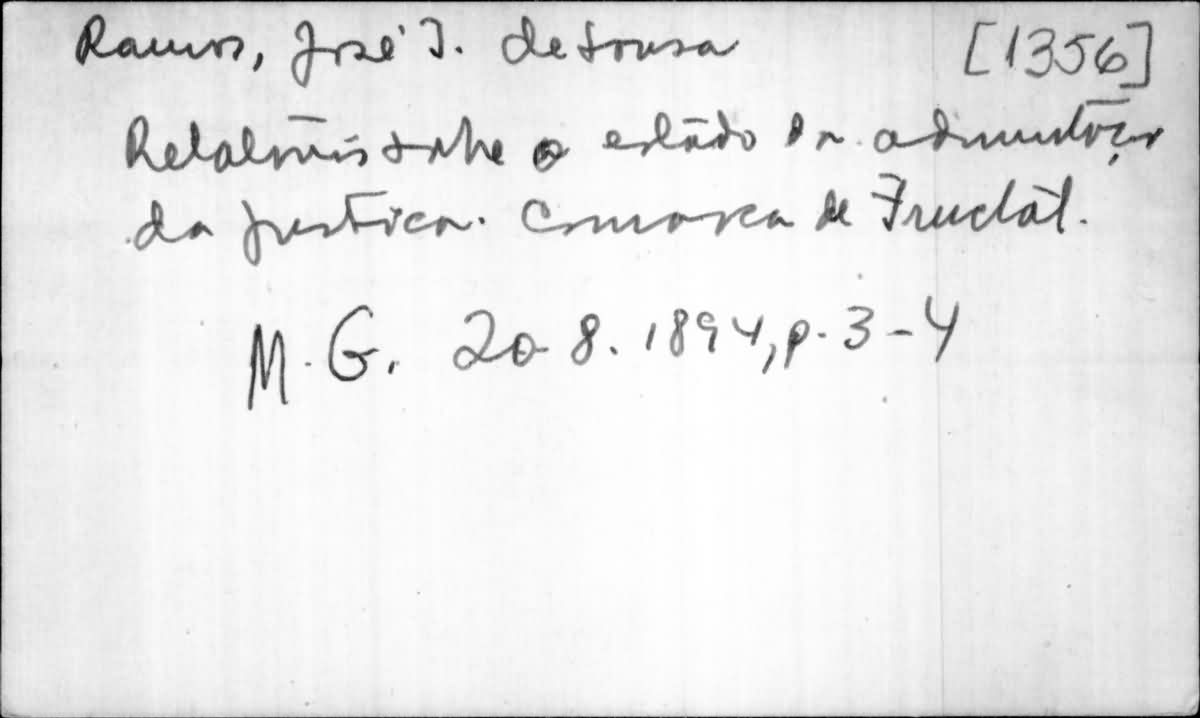 Ramos, José J. de Sousa [1356]
Relatorio sobre o estado da administração
da justiça. Comarca de Fructal.
M. G. 20-8-1894, p. 3-4